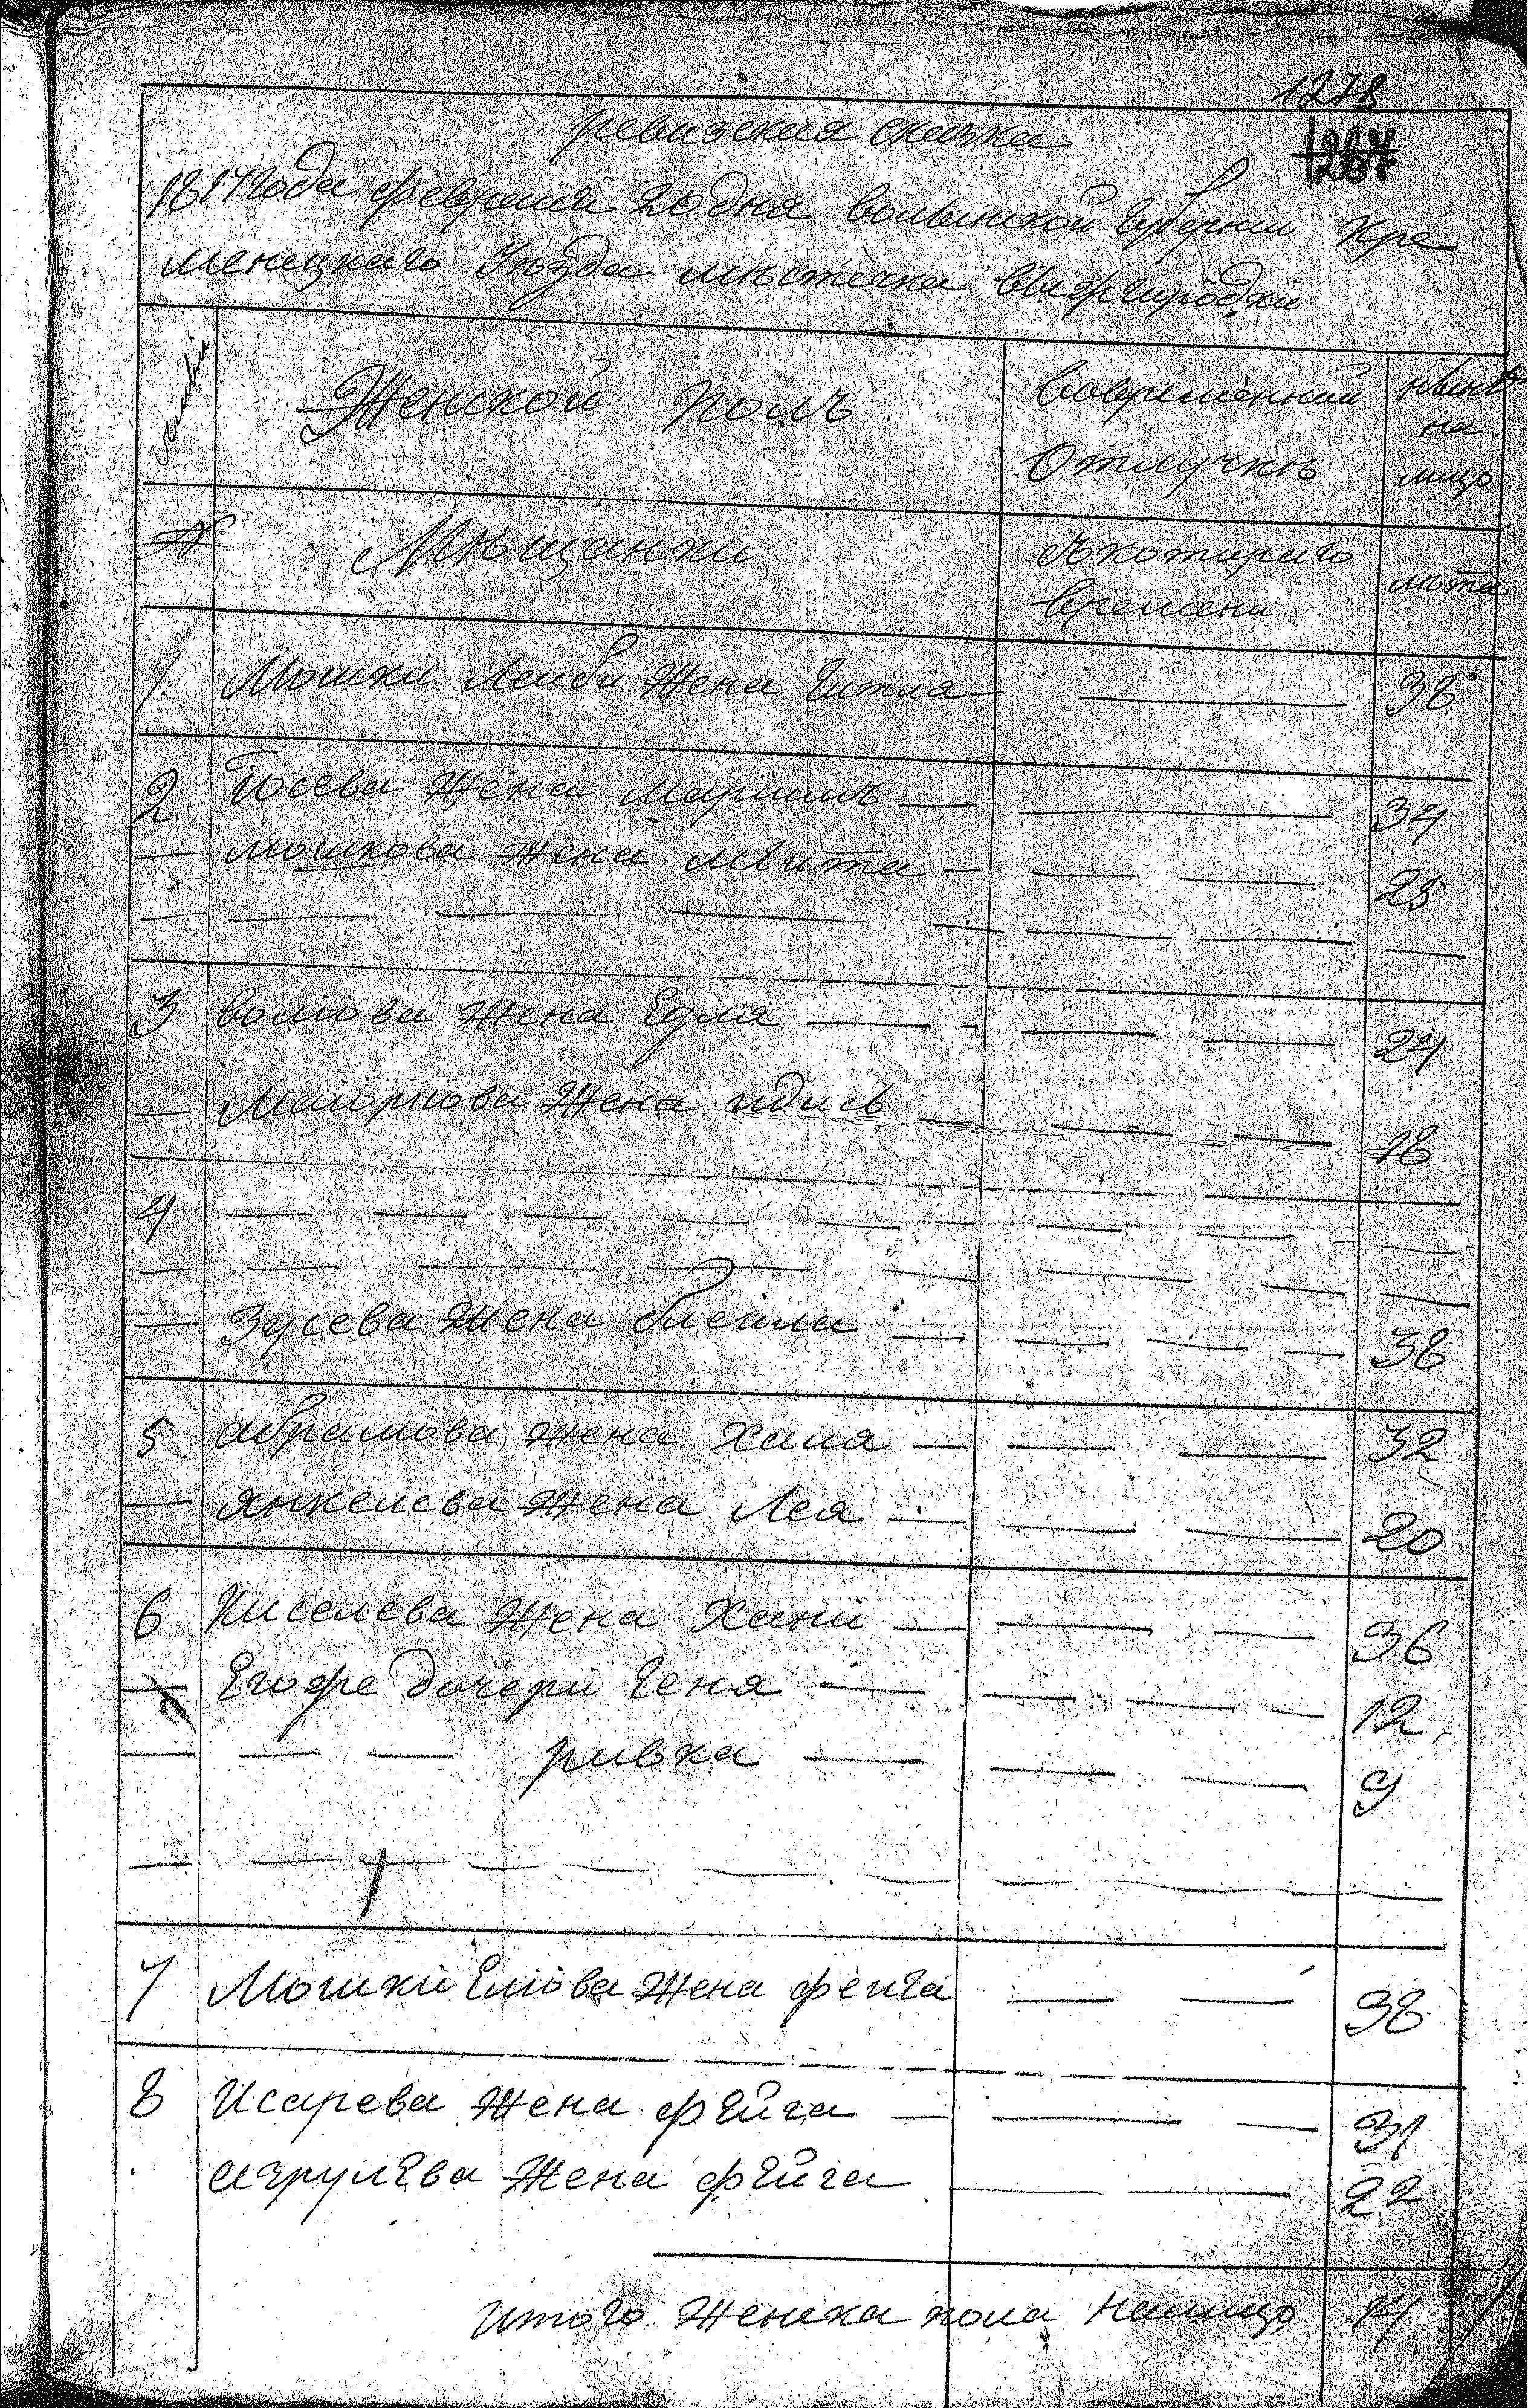 1278
1267
ревизская сказка
1817 года февраля 20 дня волынской губернии Кре
менецкаго Уезда местечка
Женской полъ
вовременной
Отлучке
ныне
на
лицо
№
Мещанки
съкотораго
времени
лета
1. Мошки Лейби жена Гитля — 38
2 Иосева жена мариимъ — 34
— мошкова жена — 25
3 волиова жена Едля — 24
— жена — 18
4
— Зусева жена блейла — 38
5 абрамова жена Хаия — 32
— янкелева жена Лея — 20
6 Киселева жена Хани — 36
— Егофе дочери Геня — 12
— — — ривка — 9
7 Мошки Елиова жена фейга — 38
8 Исарева жена фейга — 31
жена фейга 22
Итого женска пола налицо 14